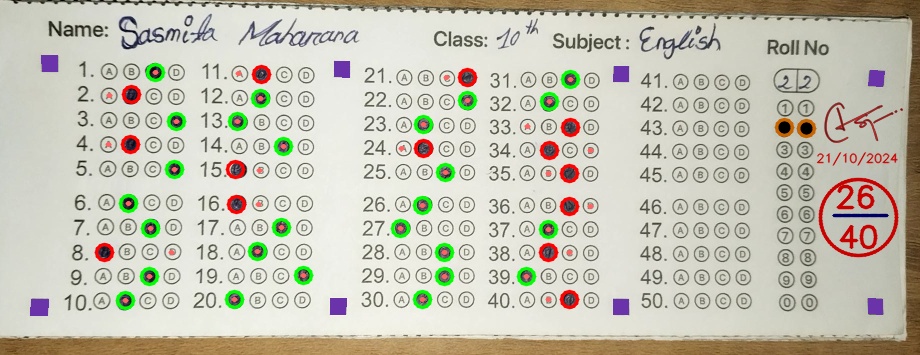 Name: Sasmita Maharana
Class: 10th Subject: English
Roll No
22
1. A B D
2. A C D
3. A B C
4. A C D
5. A B C
6. A C D
7. A B D
8. B C D
9. A B D
10. A C D
11. A C D
12. A C D
13. B C D
14. A B D
15. B C D
16. B C D
17. A B D
18. A C D
19. A B C
20. B C D
21. A B C
22. A B C
23. A C D
24. A C D
25. A B D
26. A C D
27. B C D
28. A B D
29. A B D
30. A C D
31. A B D
32. A C D
33. A B D
34. A C D
35. A B D
36. A B D
37. A C D
38. A C D
39. B C D
40. A B D
41. A B C D
42. A B C D
43. A B C D
44. A B C D
45. A B C D
46. A B C D
47. A B C D
48. A B C D
49. A B C D
50. A B C D
1 1
3 3
4 4
5 5
6 6
7 7
8 8
9 9
0 0
21/10/2024
26
40